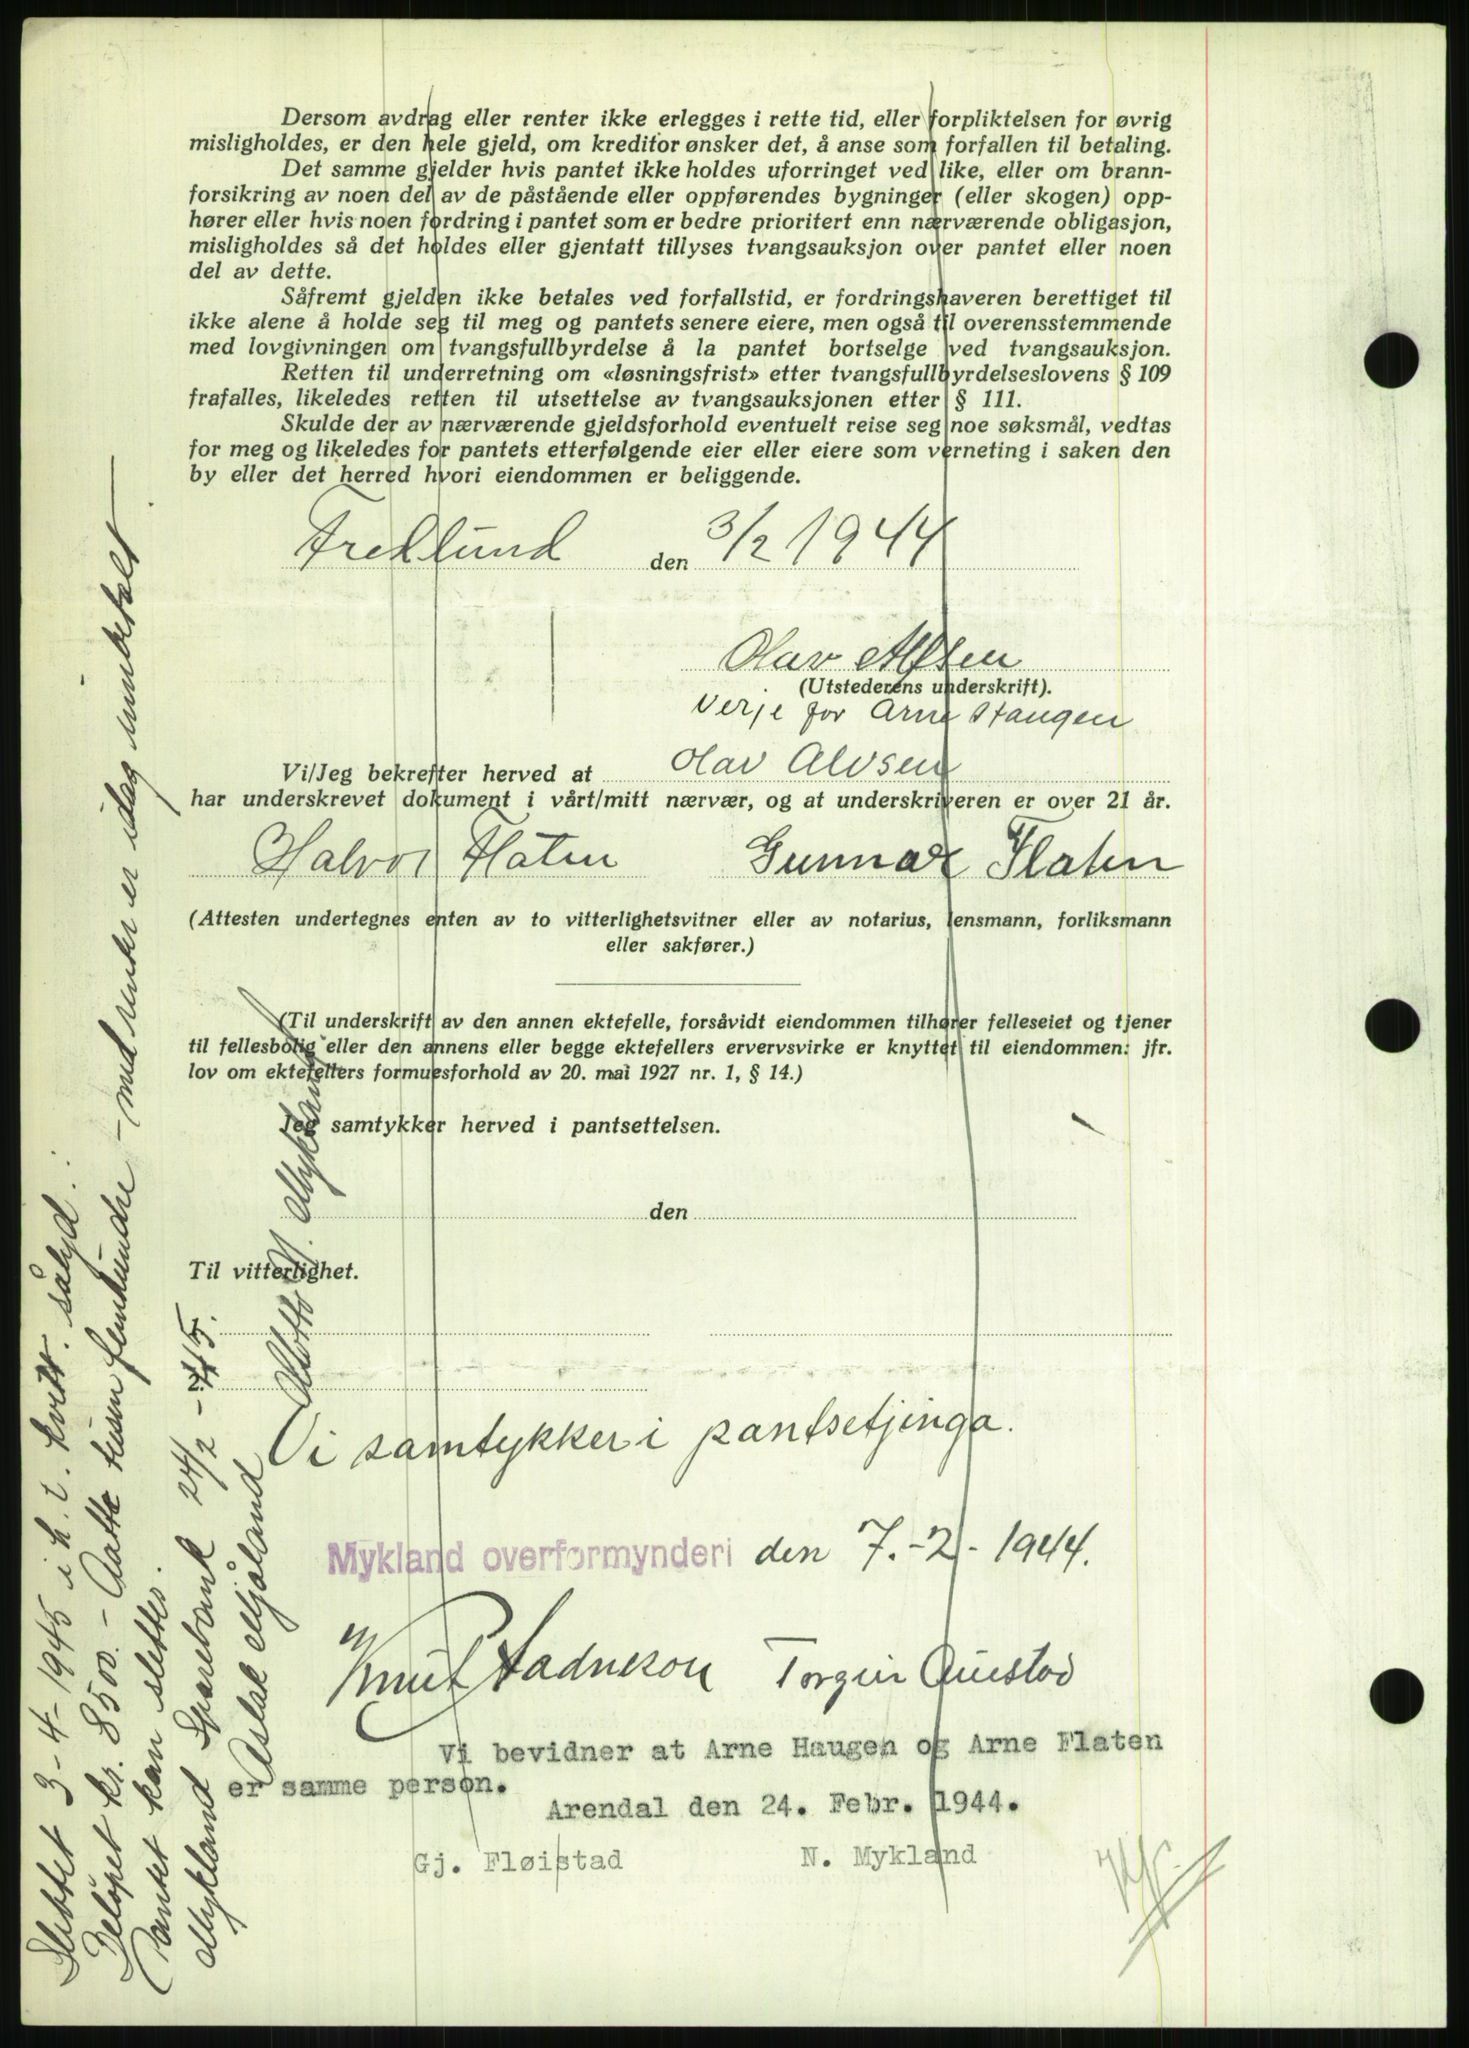 Dersom avdrag eller renter ikke erlegges i rette tid, eller forpliktelsen for øvrig
misligholdes, er den hele gjeld, om kreditor ønsker det, å anse som forfallen til betaling.
Det samme gjelder hvis pantet ikke holdes uforringet ved like, eller om brann-
forsikring av noen del av de påstående eller oppførendes bygninger (eller skogen) opp-
hører eller hvis noen fordring i pantet som er bedre prioritert enn nærværende obligasjon,
misligholdes så det holdes eller gjentatt tillyses tvangsauksjon over pantet eller noen
del av dette.
Såfremt gjelden ikke betales ved forfallstid, er fordringshaveren berettiget til
ikke alene å holde seg til meg og pantets senere eiere, men også til overensstemmende
med lovgivningen om tvangsfullbyrdelse å la pantet bortselge ved tvangsauksjon.
Retten til underretning om «løsningsfrist» etter tvangsfullbyrdelseslovens § 109
frafalles, likeledes retten til utsettelse av tvangsauksjonen etter § 111.
Skulde der av nærværende gjeldsforhold eventuelt reise seg noe søksmål, vedtas
for meg og likeledes for pantets etterfølgende eier eller eiere som verneting i saken den
by eller det herred hvori eiendommen er beliggende.
Fredlund den 3/2 1944
Olav Alfsen
(Utstederens underskrift).
Verje for Arne Haugen
Vi/Jeg bekrefter herved at Olav Alvsen
har underskrevet dokument i vårt/mitt nærvær, og at underskriveren er over 21 år.
Halvor Flaten Gunnar Flaten
(Attesten undertegnes enten av to vitterlighetsvitner eller av notarius, lensmann, forliksmann
eller sakfører.)
(Til underskrift av den annen ektefelle, forsåvidt eiendommen tilhører felleseiet og tjener
til fellesbolig eller den annens eller begge ektefellers ervervsvirke er knyttet til eiendommen: jfr.
lov om ektefellers formuesforhold av 20. mai 1927 nr. 1, § 14.)
Jeg samtykker herved i pantsettelsen.
den
Til vitterlighet.
Vi samtykker i pantsetjinga.
Mykland overformynderi den 7.-2-1944.
Knut Tadneson Torgeir Austad
Vi bevidner at Arne Haugen og Arne Flaten
er samme person.
Arendal den 24. Febr. 1944.
Gj. Fløistad N. Mykland
Slettet 3-4-1945 i h. t. kvitt. sålyd:
Beløpet kr. 8500.- Aatte tusen femhundre - med renter er idag innbetalt
Pantet kan slettes.
Mykland Sparebank 24/2 - 45.
Aslak Mjåland Otto N. Mykland